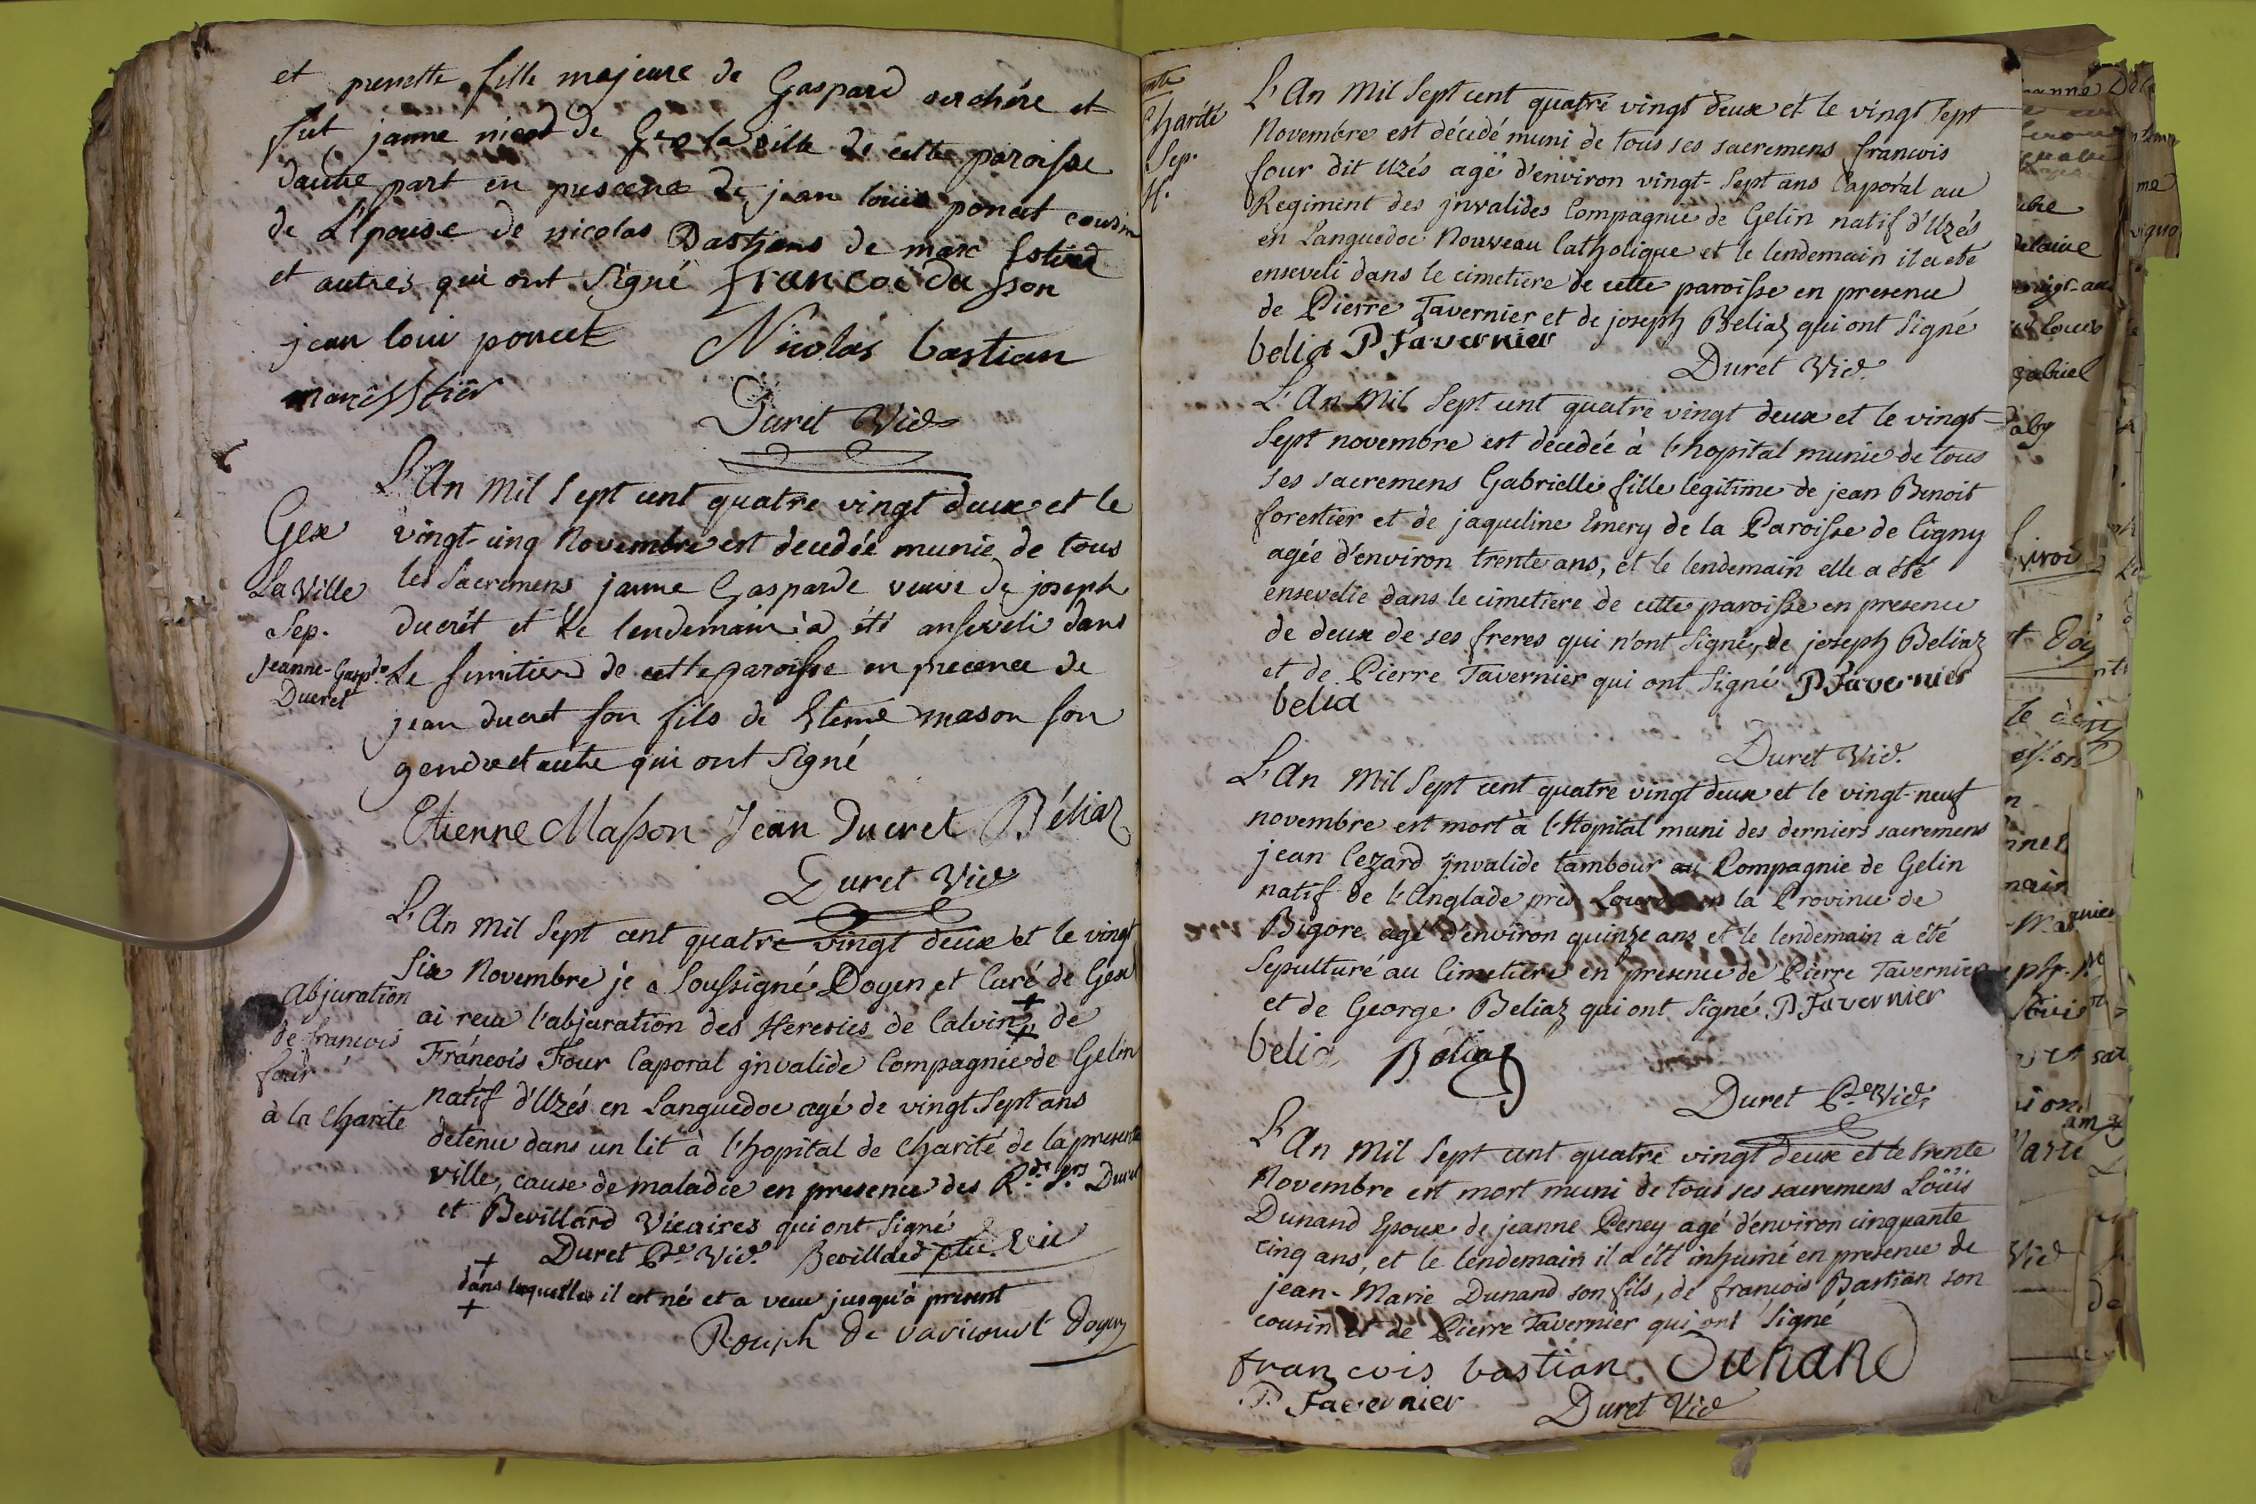 et pernette fille majeure de Gaspard et
fut janne nicod de Gex la ville de cette paroisse
dautre part en presence de jean louis poncet cousin
de L'Epouse de nicolas Dastians de marc
et autres qui ont Signé francoi du sson
jean loui poncet Nicolas bastian
Duret Vic
Gex
La Ville
Sep.
Jeanne-Gaspde
Ducret
L'An Mil Sept cent quatre vingt deux et le
vingt-cinq Novembre est decedée munie de tous
les Sacremens janne Gasparde veuve de joseph
ducrét et le lendemain a été anseveli dans
Le simitier de cette paroisse en precence de
jean ducret son fils de Etienne mason son
gendre et autre qui ont Signé
Etienne Masson Jean Ducret Béliaz
Duret Vic
Abjuration
de francois
four
à la Charité
L'An Mil Sept cent quatre vingt deux et le vingt
Six Novembre je Soussigné Doyen et Curé de Gex
ai recu l'abjuration des Heresies de Calvin ++ de
Francois Four Caporal jnvalide Compagnie de Gelin
natif d'Uzés en Languedoc agé de vingt Sept ans
detenu dans un lit à l'hopital de Charité de la presente
ville, cause de maladie en presence des Rds Srs Duret
et Bevillard Vicaires qui ont Signé
Duret Ptre Vic. Bevillard ptre vic
+ dans lesquelles il est né et a vecu jusqu'à present +
Rouph de varicourt doyen
Charité
Sep.
H.
L'An Mil Sept cent quatre vingt deux et le vingt Sept
Novembre est décédé muni de tous ses sacremens francois
four dit Uzés agé d'environ vingt-Sept ans Caporal au
Regiment des jnvalides Compagnie de Gelin natif d'Uzés
en Languedoc Nouveau Catholique et le lendemain il a eté
enseveli dans le cimetiere de cette paroisse en presence
de Pierre Tavernier et de joseph Beliaz qui ont Signé
belia P Tavernier
Duret Vic.
L'An Mil Sept cent quatre vingt deux et le vingt
Sept novembre est decedée à l'hopital munie de tous
ses sacremens Gabrielle fille legitime de jean Benoit
forestier et de jaqueline Emery de la Paroisse de Cigny
agée d'environ trente ans, et le lendemain elle a été
ensevelie dans le cimetiere de cette paroisse en presence
de deux de ses freres qui n'ont Signé, de joseph Beliaz
et de Pierre Tavernier qui ont Signé P Tavernier
belia
Duret Vic.
L'An Mil Sept cent quatre vingt deux et le vingt-neuf
novembre est mort à l'Hopital muni des derniers sacremens
jean Cezard jnvalide tambour au Compagnie de Gelin
natif de l'Anglade près Lourde en la Province de
Bigore agé d'environ quinze ans et le lendemain a été
Sepulturé au Cimetiere en presence de Pierre Tavernier
et de George Beliaz qui ont Signé P Tavernier
belia Béliaz
Duret Ptre Vic.
L'An Mil Sept cent quatre vingt deux et le trente
Novembre est mort muni de tous ses sacremens Loüis
Dunand Epoux de jeanne Peney agé d'environ cinquante
cinq ans, et le lendemain il a été inhumé en presence de
jean-Marie Dunand son fils, de francois Bastian son
cousin et de Pierre Tavernier qui ont Signé
francois bastian Dunand
P. Tavernier Duret Vic